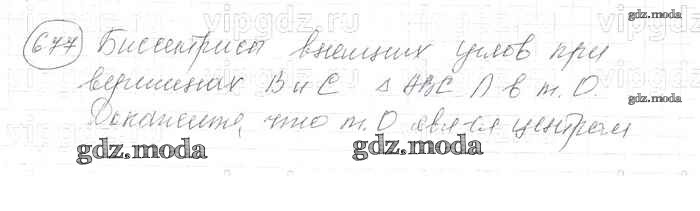 vipgdz.ru
gdz.moda
677 Биссектрисы внешних углов при
вершинах В и С △ АВС ∩ в т. О.
gdz.moda
Докажите, что т. О явл-ся центром
gdz.moda
gdz.moda